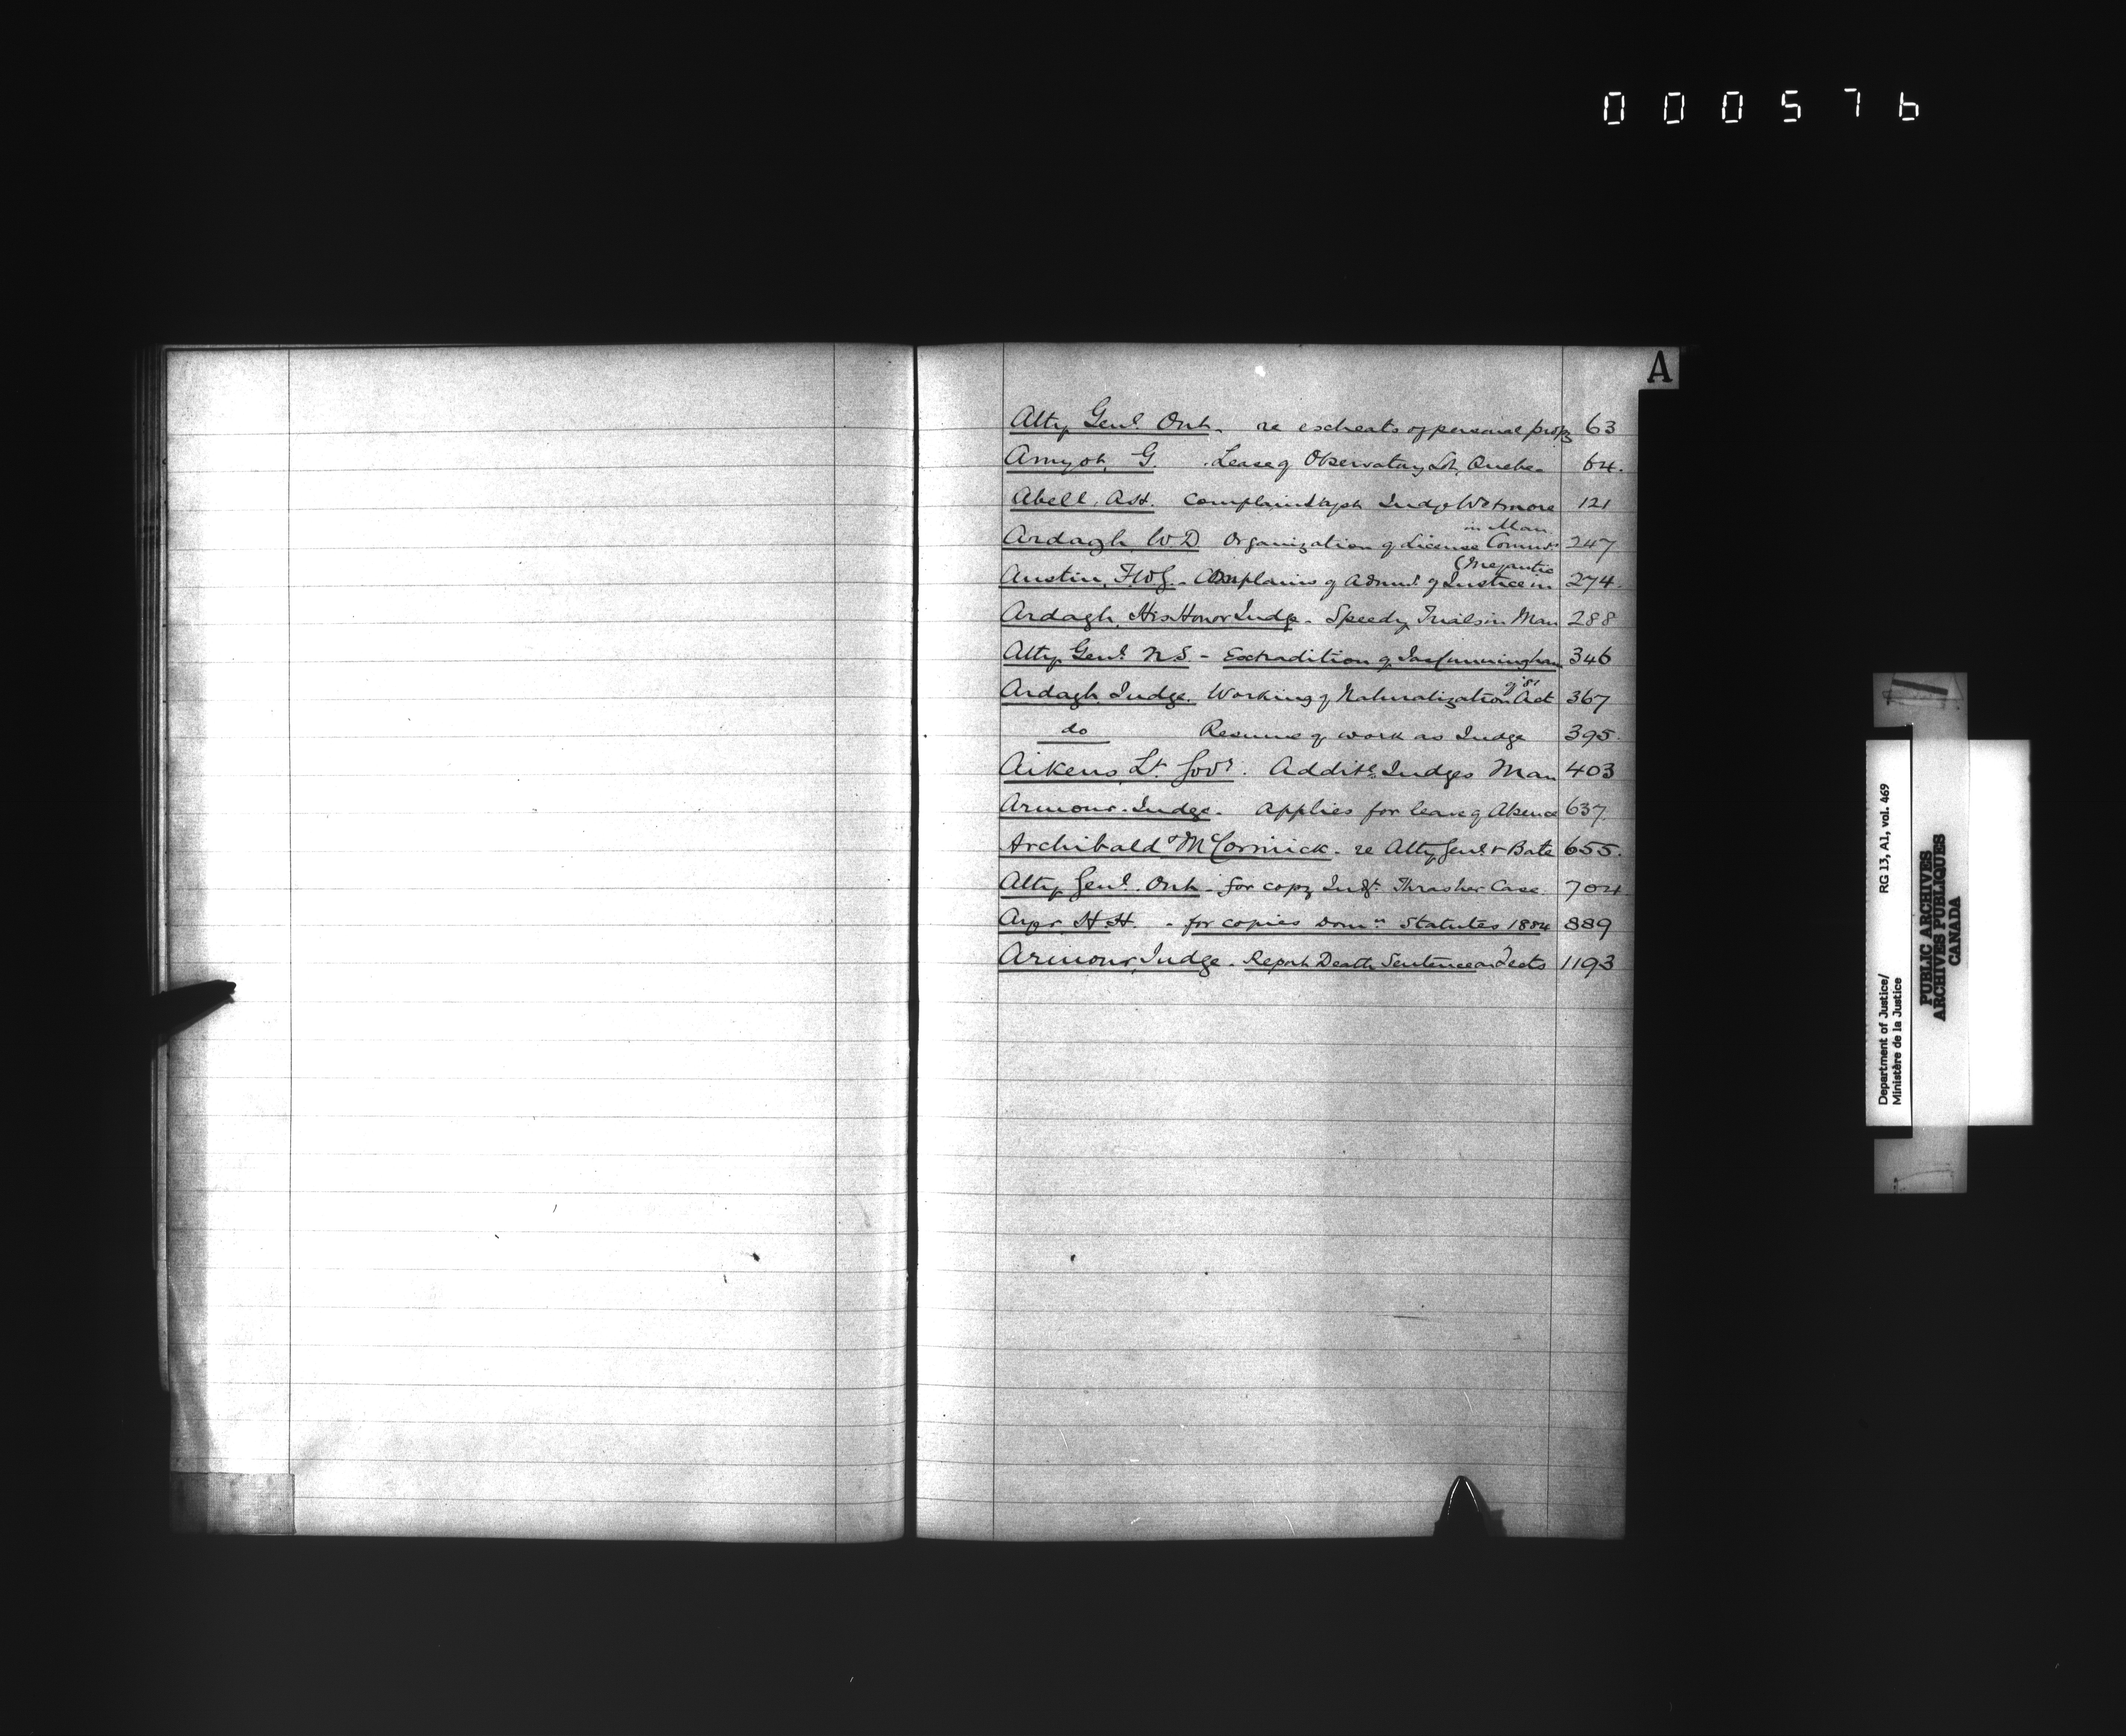 000576
A
Atty Genl. Ont. re escheats of personal propy 63
Amyot, G. Lease of Observatory Lot, Quebec 64.
Abell, Complaint agst Judge Wetmore 121
in Man.
Ardagh W.D Organization of License Commrs 247
(Megantic
Austin, F.W.G. - Complains of Admn. of Justice in 274.
Ardagh, His Honor Judge. Speedy Trials in Man 288
Atty Genl. N.S. - Extradition of Jas Cunningham 346
of '81
Ardagh Judge. Working of Naturalization Act 367
do Resume of work as Judge 395.
Aikens, Lt. Govr. Additl. Judges Man 403
Armour. Judge. applies for leave of Absence 637
Archibald & McCormick. re Atty Genl. v Bate 655.
Atty Genl. Ont. for copy Judgt. Thrasher Case. 704
H.H. - for copies Domn. Statutes 1884 889
Armour, Judge. Report Death Sentence on 1193
Department of Justice/
Ministère de la Justice
RG 13, A1, vol. 469
PUBLIC ARCHIVES
ARCHIVES PUBLIQUES
CANADA